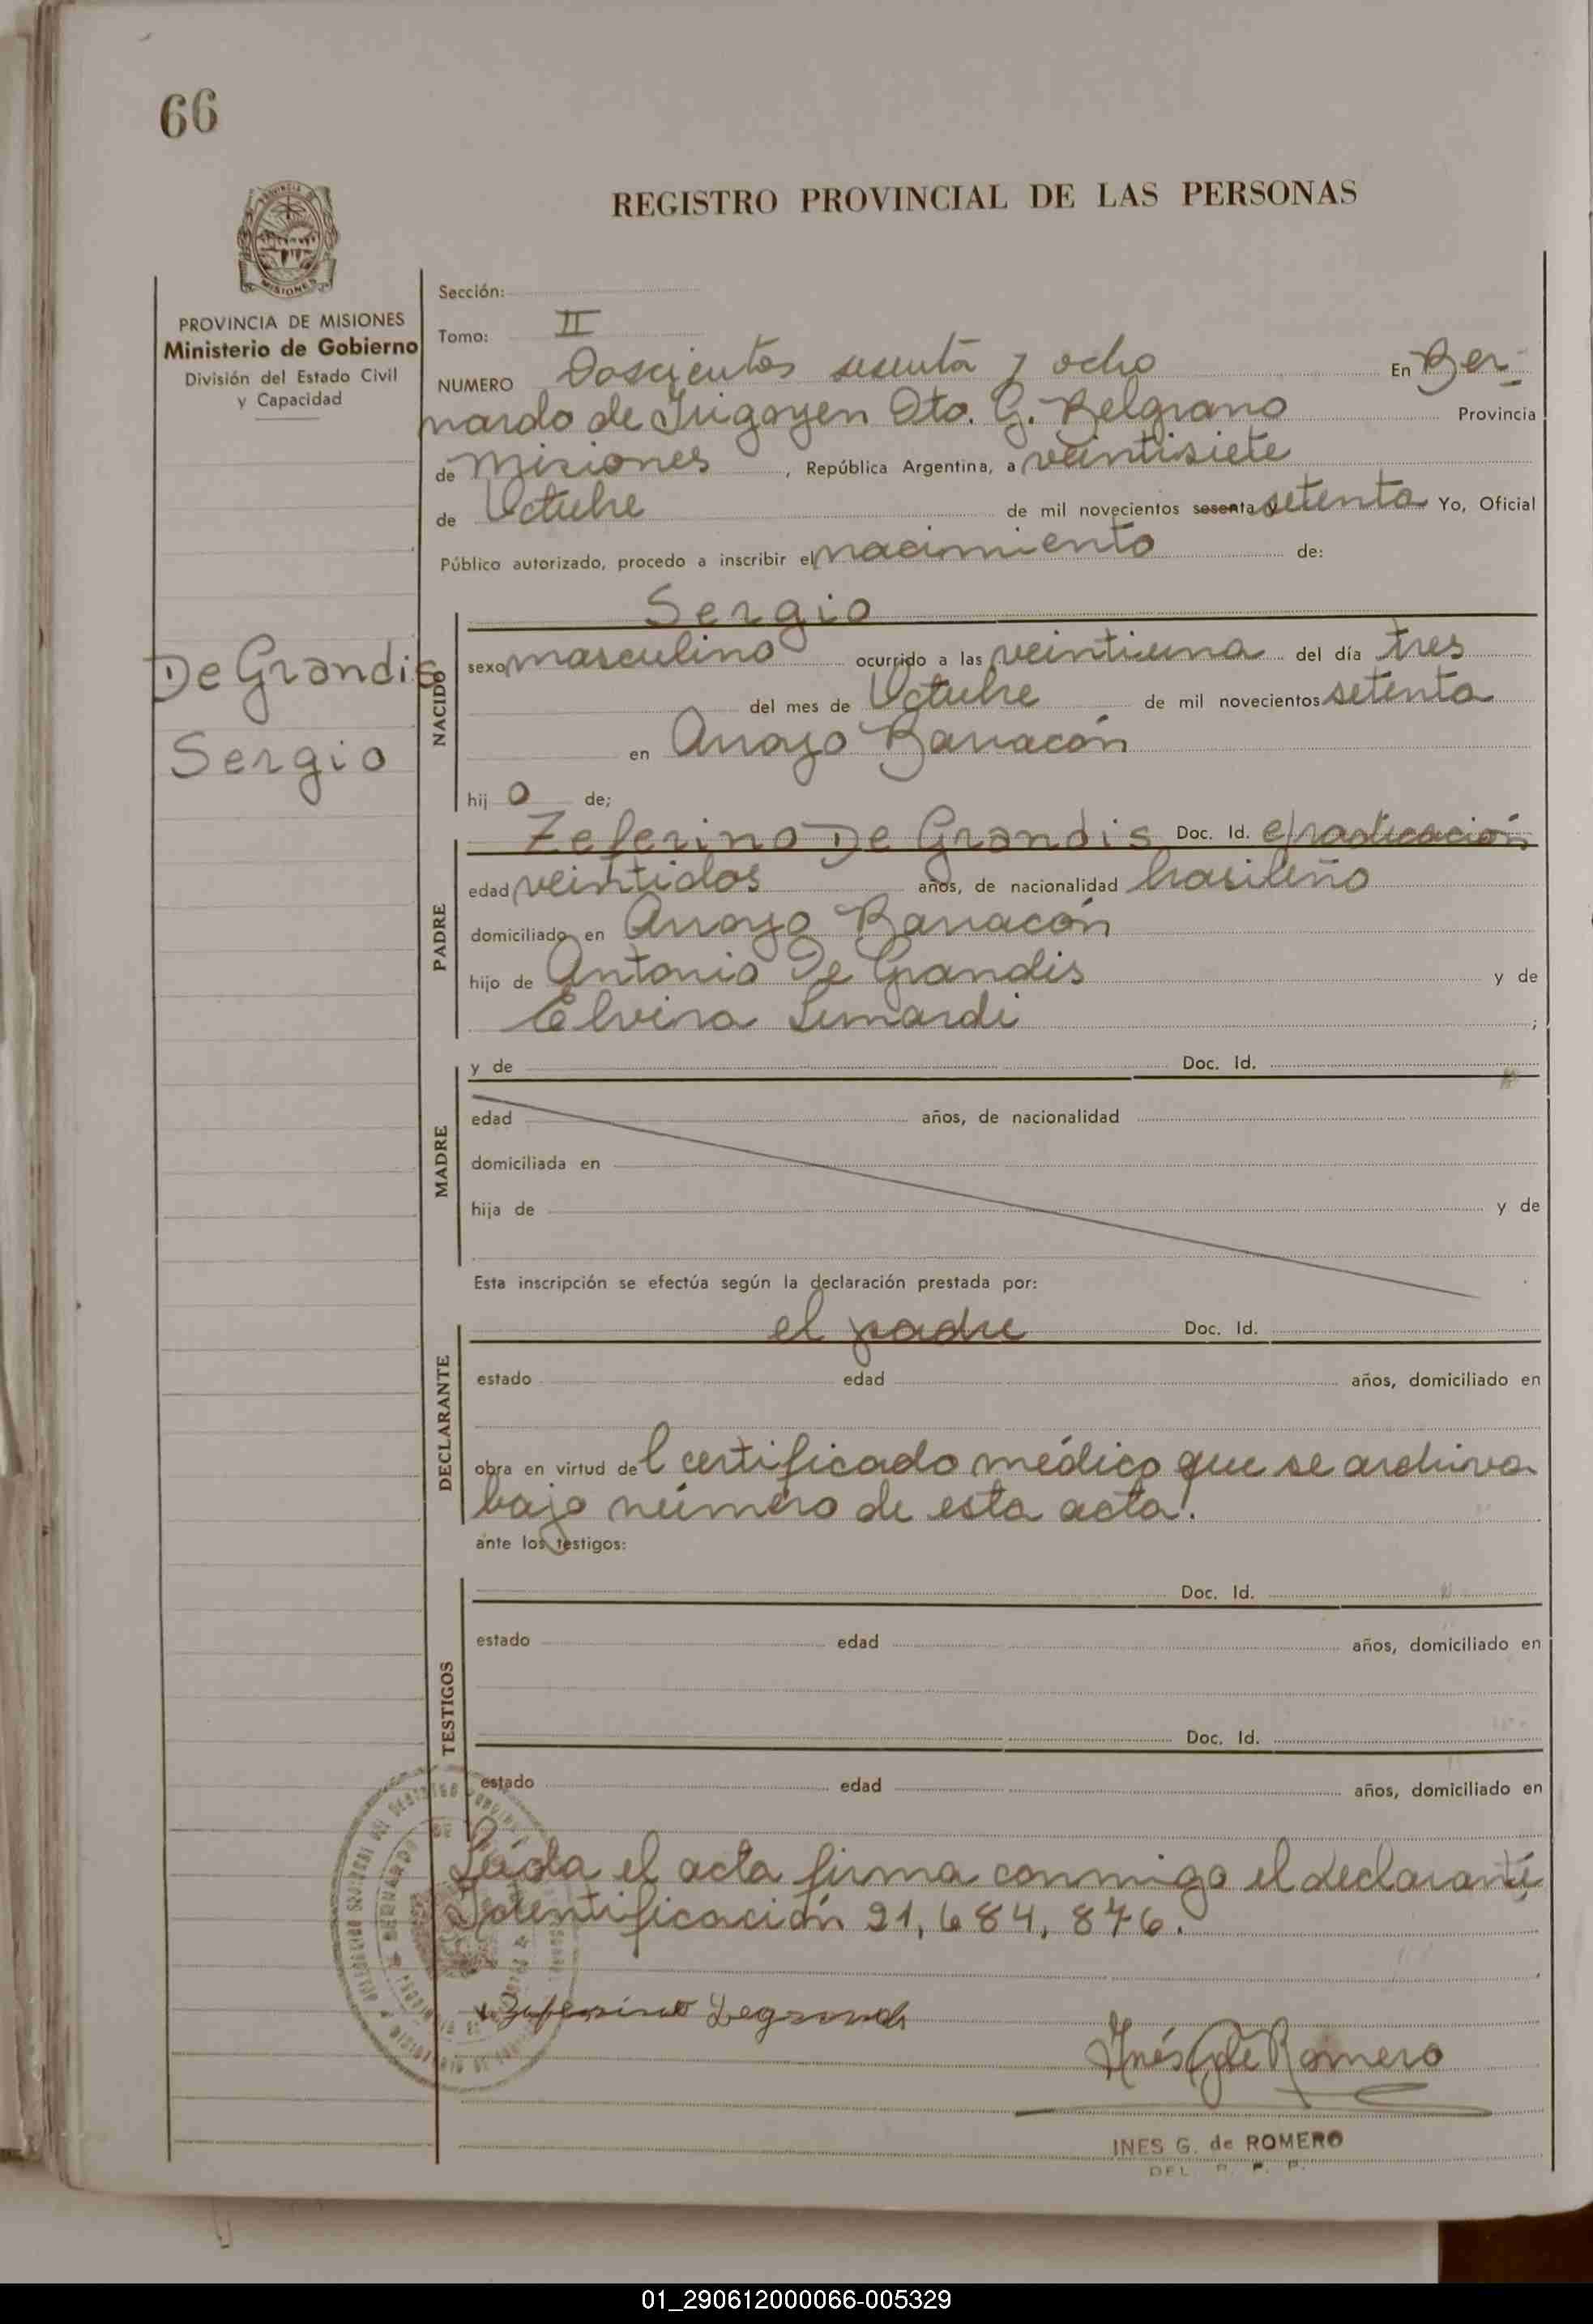 66
REGISTRO PROVINCIAL DE LAS PERSONAS
MISIONES
PROVINCIA DE MISIONES
Ministerio de Gobierno
División del Estado Civil
y Capacidad
Sección:
Tomo: II
NUMERO Doscientos sesenta y ocho En Ber-
nardo de Irigoyen Dto. G. Belgrano Provincia
de Misiones, República Argentina, a veintisiete
de Octubre de mil novecientos sesenta y setenta Yo, Oficial
Público autorizado, procedo a inscribir el nacimiento de:
De Grandis
Sergio
NACIDO
Sergio
sexo masculino ocurrido a las veintiuna del día tres
del mes de Octubre de mil novecientos setenta
en Arroyo Barracón
hij o de;
PADRE
Zeferino De Grandis Doc. Id. c/radicación
edad veintidos años, de nacionalidad brasileño
domiciliado en Arroyo Barracón
hijo de Antonio De Grandis y de
Elvira ;
MADRE
y de Doc. Id.
edad años, de nacionalidad
domiciliada en
hija de y de
Esta inscripción se efectúa según la declaración prestada por:
DECLARANTE
el padre Doc. Id.
estado edad años, domiciliado en
obra en virtud del certificado médico que se archiva
bajo número de esta acta.
ante los testigos:
TESTIGOS
Doc. Id.
estado edad años, domiciliado en
Doc. Id.
estado edad años, domiciliado en
Leída el acta firma conmigo el declarante
Identificación 21,684,846.
Inés G de Romero
INES G. de ROMERO
DEL R. P. P.
01_290612000066-005329